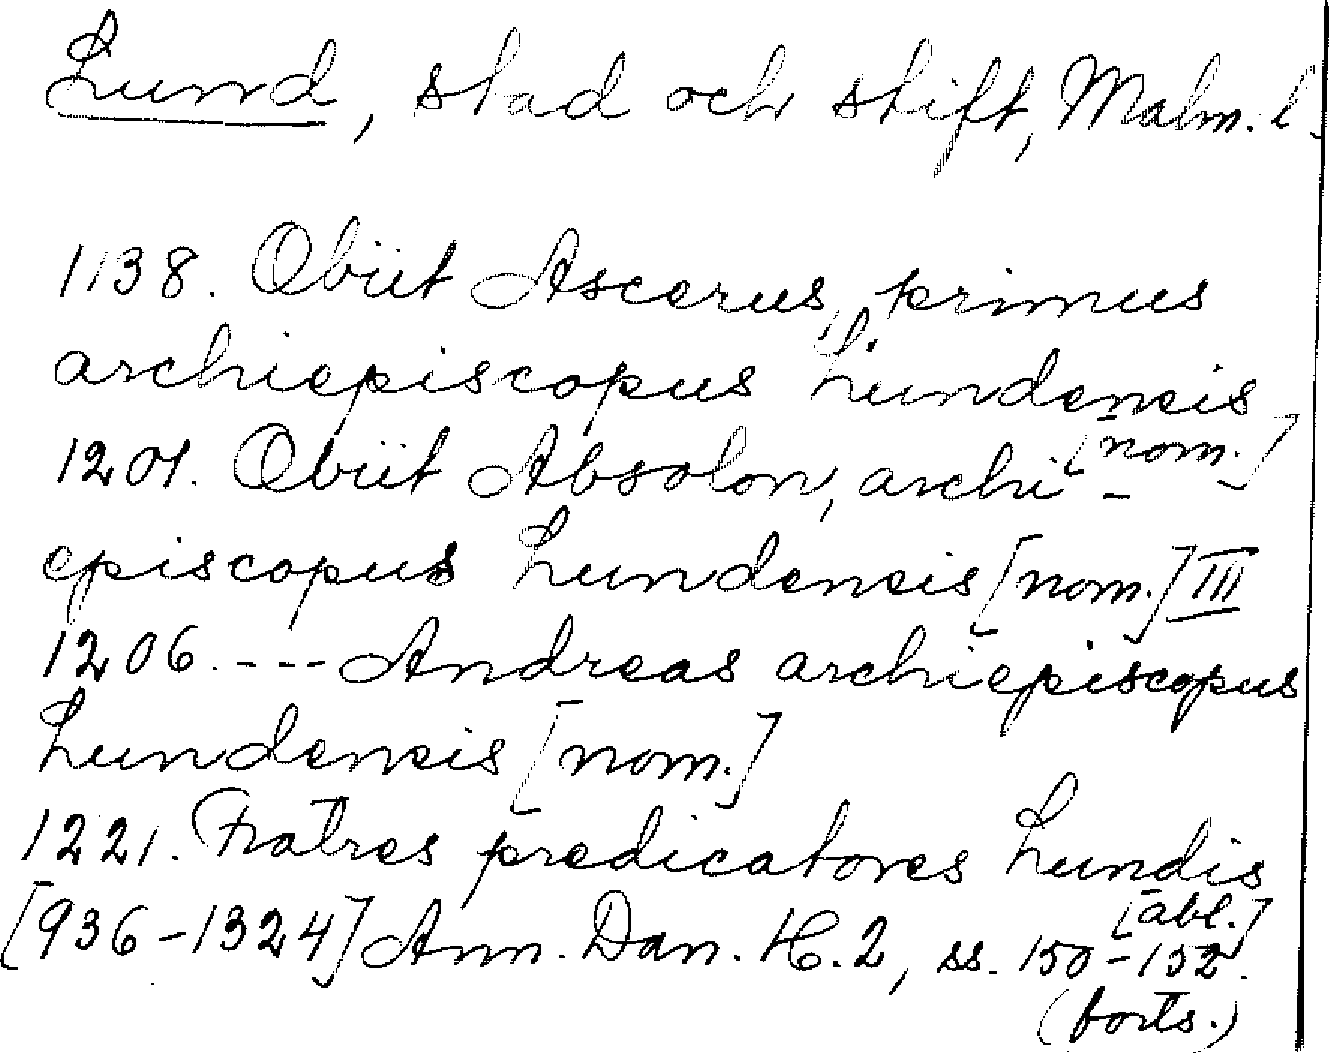 Lund, stad och stift, Malm. l.
1138. Obiit Ascerus, primus
archiepiscopus Lundensis
[nom.]
1201. Obiit Absolon, archi-
episcopus Lundensis [nom.] III
1206. --- Andreas archiepiscopus
Lundensis [nom.]
1221. Fratres predicatores Lundis
[abl.]
[936-1324] Ann. Dan. H. 2, ss. 150-152.
(forts.)